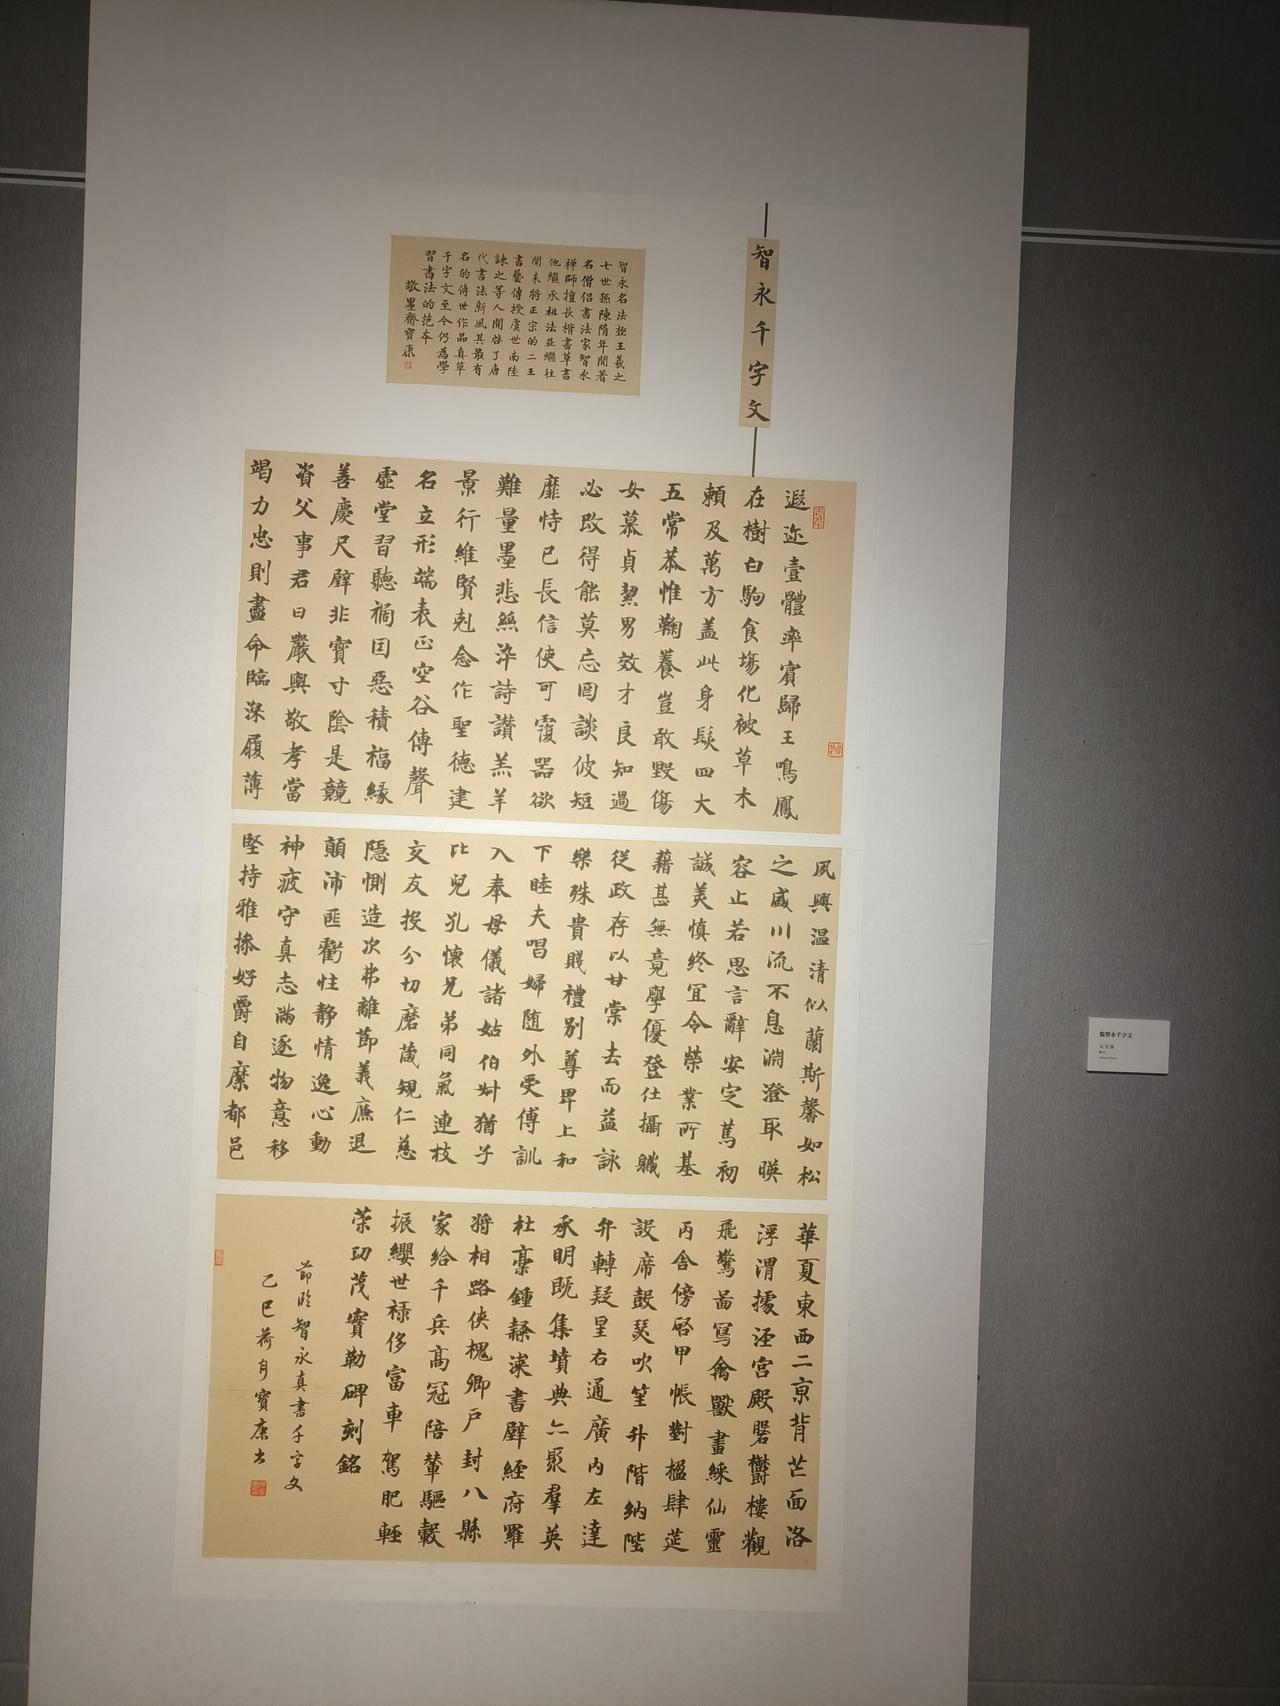 智永千字文
智永名法极王羲之
七世孫陳隋年間著
名僧侣書法家智永
禅師擅長楷書草書
他繼承祖法並繼往
開末將正宗的二王
書藝傳授虞世南陸
諫之等人開啓了唐
代書法新風其最有
名的傳世作品真草
千字文至今仍為學
習書法的范本
敬墨齋寳康
遐迩壹體率賓歸王鳴鳳
在樹白駒食場化被草木
賴及萬方盖此身髮四大
五常恭惟鞠養豈敢毀傷
女慕貞絜男效才良知過
必改得能莫忘罔談彼短
靡恃己長信使可覆器欲
難量墨悲絲染詩讃羔羊
景行維賢剋念作聖德建
名立形端表正空谷傳聲
虛堂習聽禍因惡積福緣
善慶尺璧非寶寸陰是競
資父事君曰嚴與敬孝當
竭力忠則盡命臨深履薄
夙興温清似蘭斯馨如松
之盛川流不息淵澄取暎
容止若思言辭安定篤初
誠美慎終宜令榮業所基
藉甚無竟學優登仕攝職
從政存以甘棠去而益詠
樂殊貴賤禮别尊卑上和
下睦夫唱婦随外受傅訓
入奉母儀諸姑伯叔猶子
比兒孔懷兄弟同氣連枝
交友投分切磨箴規仁慈
隱惻造次弗離節義廉退
顛沛匪虧性静情逸心動
神疲守真志滿逐物意移
堅持雅操好爵自縻都邑
華夏東西二京背芒面洛
浮渭據涇宮殿磐欝樓觀
飛驚啚寫禽獸畫綵仙靈
丙舍傍啓甲帳對楹肆筵
設席鼓瑟吹笙升階納陛
弁轉疑星右通廣内左達
承明既集墳典亦聚羣英
杜稾鍾隸漆書壁經府羅
將相路俠槐卿户封八縣
家給千兵高冠陪輦驅轂
振纓世禄侈富車駕肥輕
策功茂實勒碑刻銘
節臨智永真書千字文
乙巳荷月寳康書
臨智永千字文